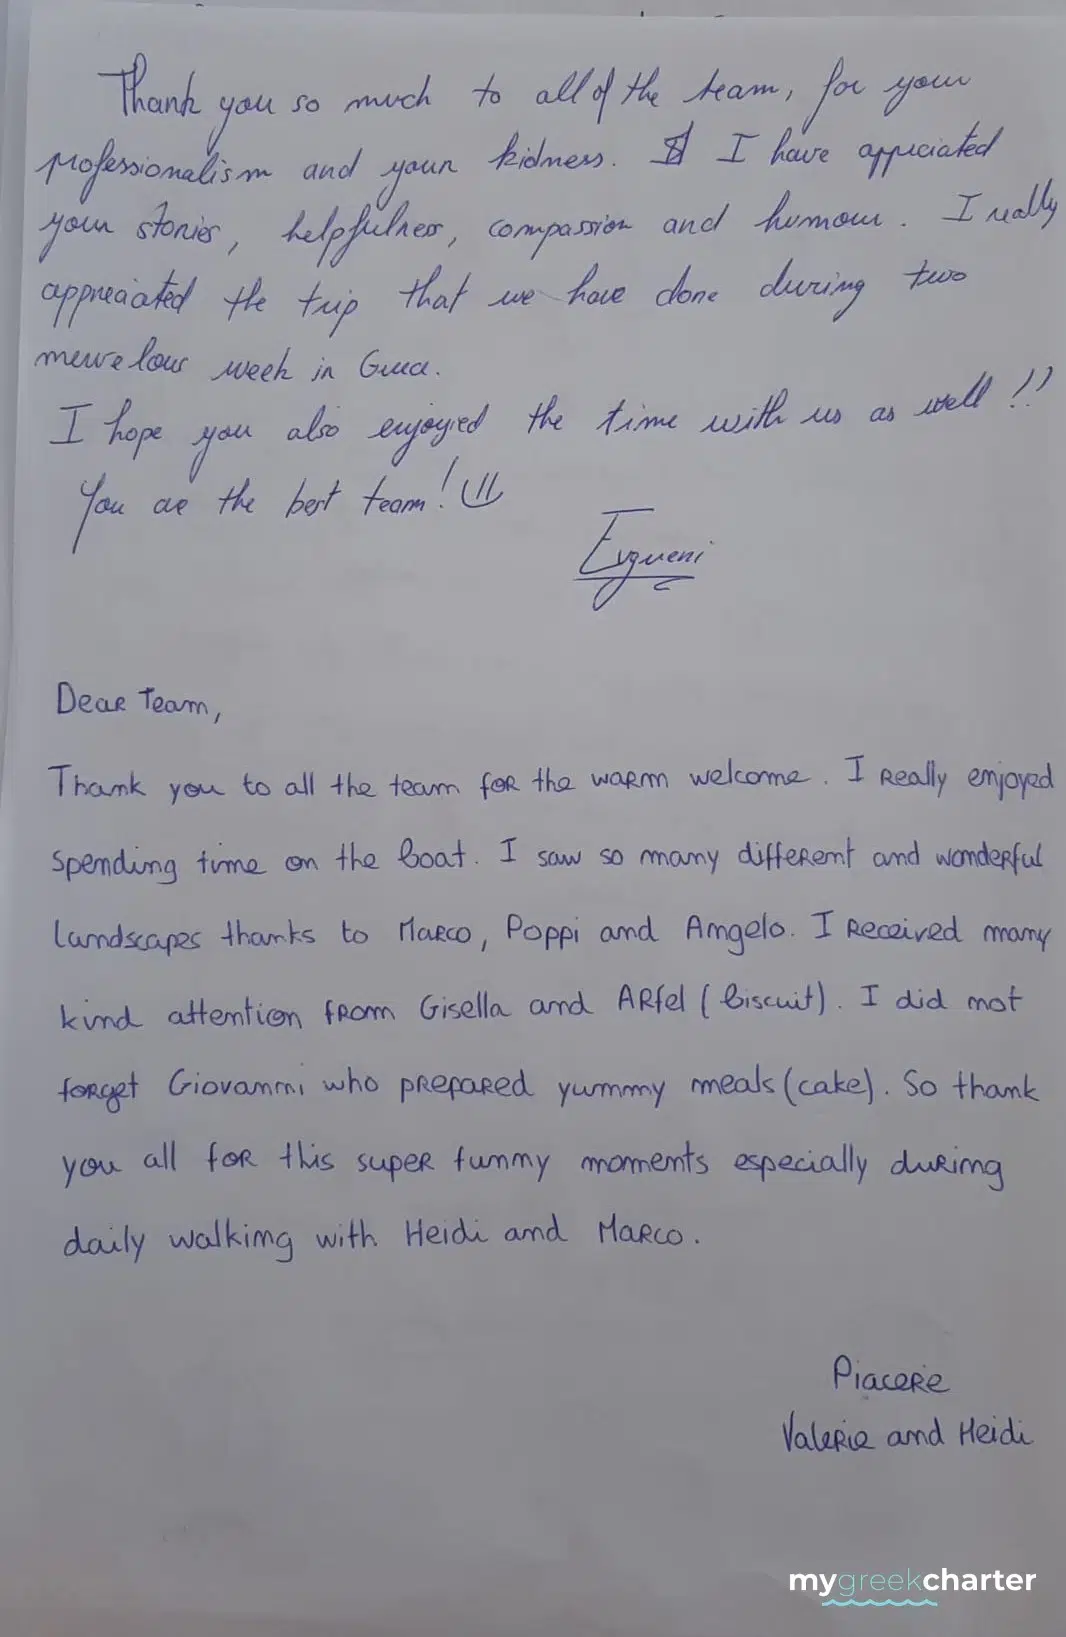 Thank you so much to all of the team, for your
professionalism and your kidness. I have appreciated
your stories, helpfulness, compassion and humour. I really
appreciated the trip that we have done during two
mervelous week in
I hope you also enjoyied the time with us as well !!
You are the best team! =)
Evgueni
Dear Team,
Thank you to all the team for the warm welcome. I really enjoyed
spending time on the boat. I saw so many different and wonderful
landscapes thanks to Marco, Poppi and Angelo. I received many
kind attention from Gisella and Arfel (biscuit). I did not
forget Giovanni who prepared yummy meals (cake). So thank
you all for this super funny moments especially during
daily walking with Heidi and Marco.
Piacere
Valerie and Heidi
mygreekcharter